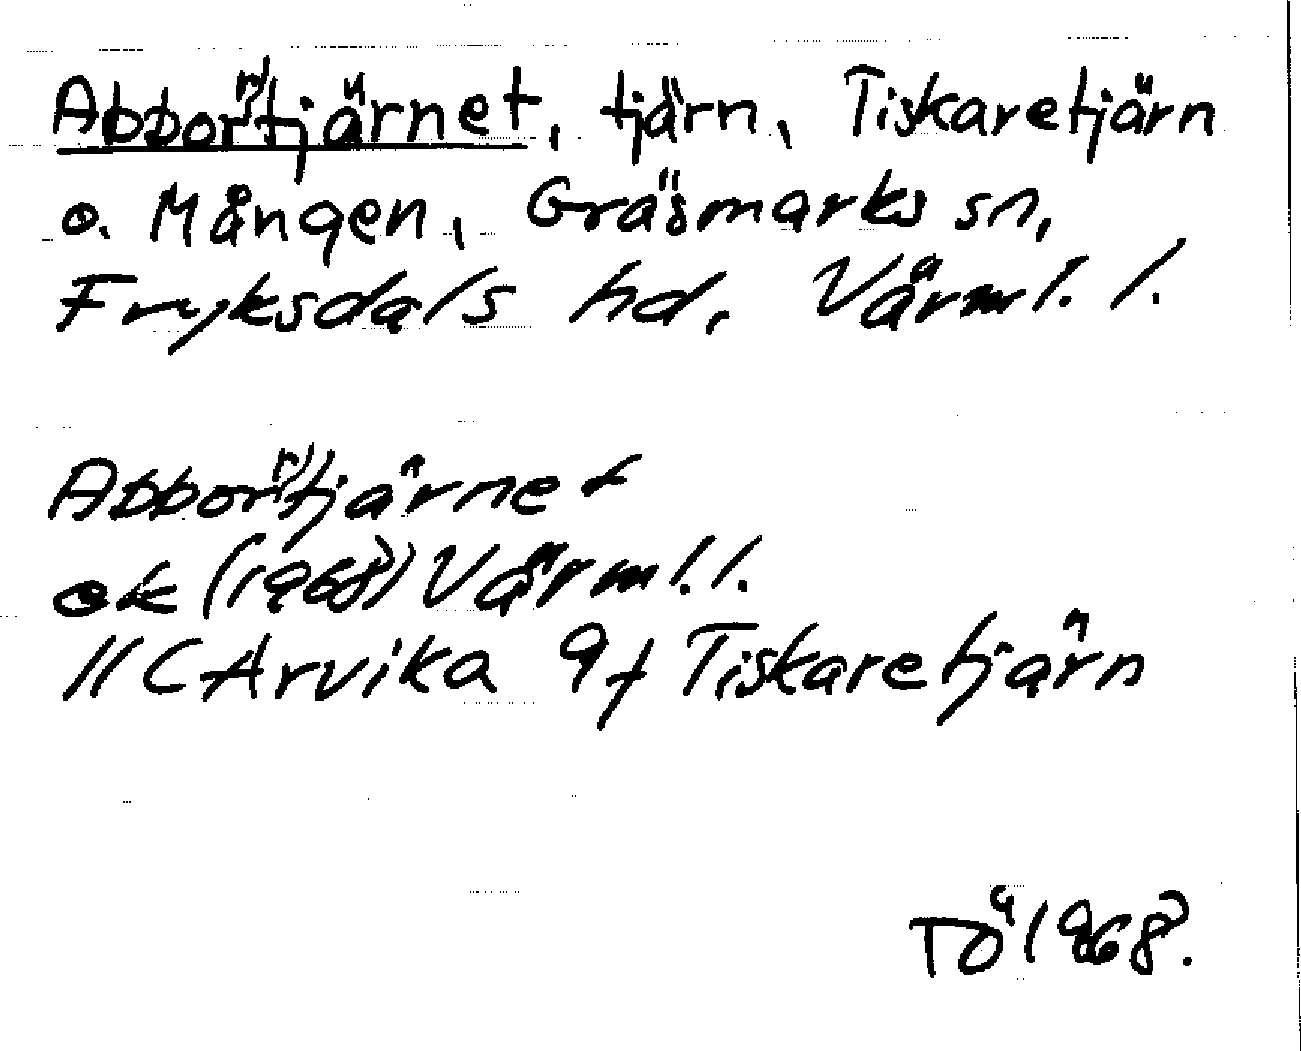 Abborrtjärnet, tjärn, Tiskaretjärn
o. Mången, Gräsmarks sn,
Fryksdals hd, Värml. l.
Abborrtjärnet
ek (1968) Värml. l.
11C Arvika 9f Tiskaretjärn
TÖ 1968.